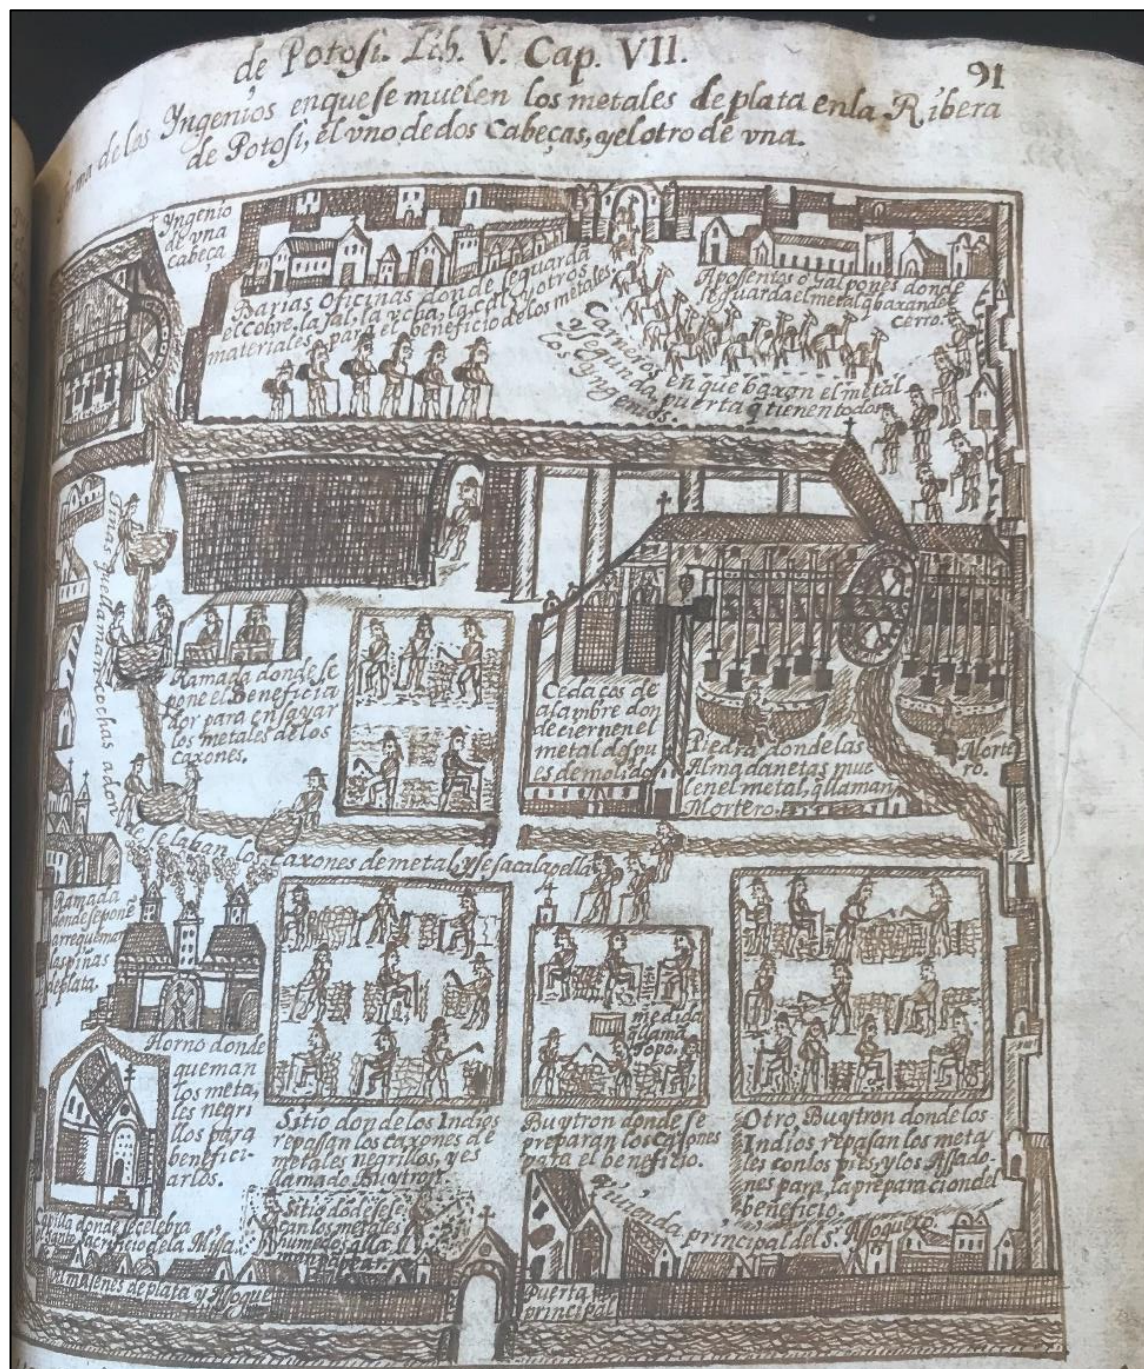 de Potosi. Lib. V. Cap. VII.
91
de los Yngenios enque se muelen los metales de plata enla Ribera
de Potosi, el vno de dos Cabeças, y el otro de vna.
Yngenio
de vna
cabeça
Barias Oficinas donde se guarda
el cobre, la sal, la ycha, la cal, y otros
materiales para el beneficio de los metales.
Apossentos o Galpones donde
se guarda el metal q baxan del
cerro.
Carneros en que baxan el metal
y segunda puerta q tienen todos
los Yngenios.
Tinas que llaman cochas adon
de se laban los caxones de metal, y se saca la pella
Ramada donde se
pone el Beneficia
dor para ensayar
los metales de los
caxones.
Cedaços de
alambre don
de ciernen el
metal despu
es de molido
Piedra donde las
Almadanetas mue
len el metal, q llaman
Mortero.
Morte
ro.
Ramada
donde se pone
a requemar
las piñas
de plata.
Horno donde
queman
los meta,
les negri
llos para
benefici-
arlos.
Sitio donde los Indios
repassan los caxones de
metales negrillos, y es
llamado Buytron.
medida
q llamã
Topo.
Buytron donde se
preparan los caxones
para el beneficio.
Otro Buytron donde los
Indios repasan los meta
les con los pies, y los Assado-
nes para la preparacion del
beneficio.
Capilla donde se celebra
el Santo Sacrificio de la Missa.
Sitio dõde se se
can los metales
humedos
Vivienda principal del S. Assoguero.
Almasenes de plata y Assogue
Puerta
principal